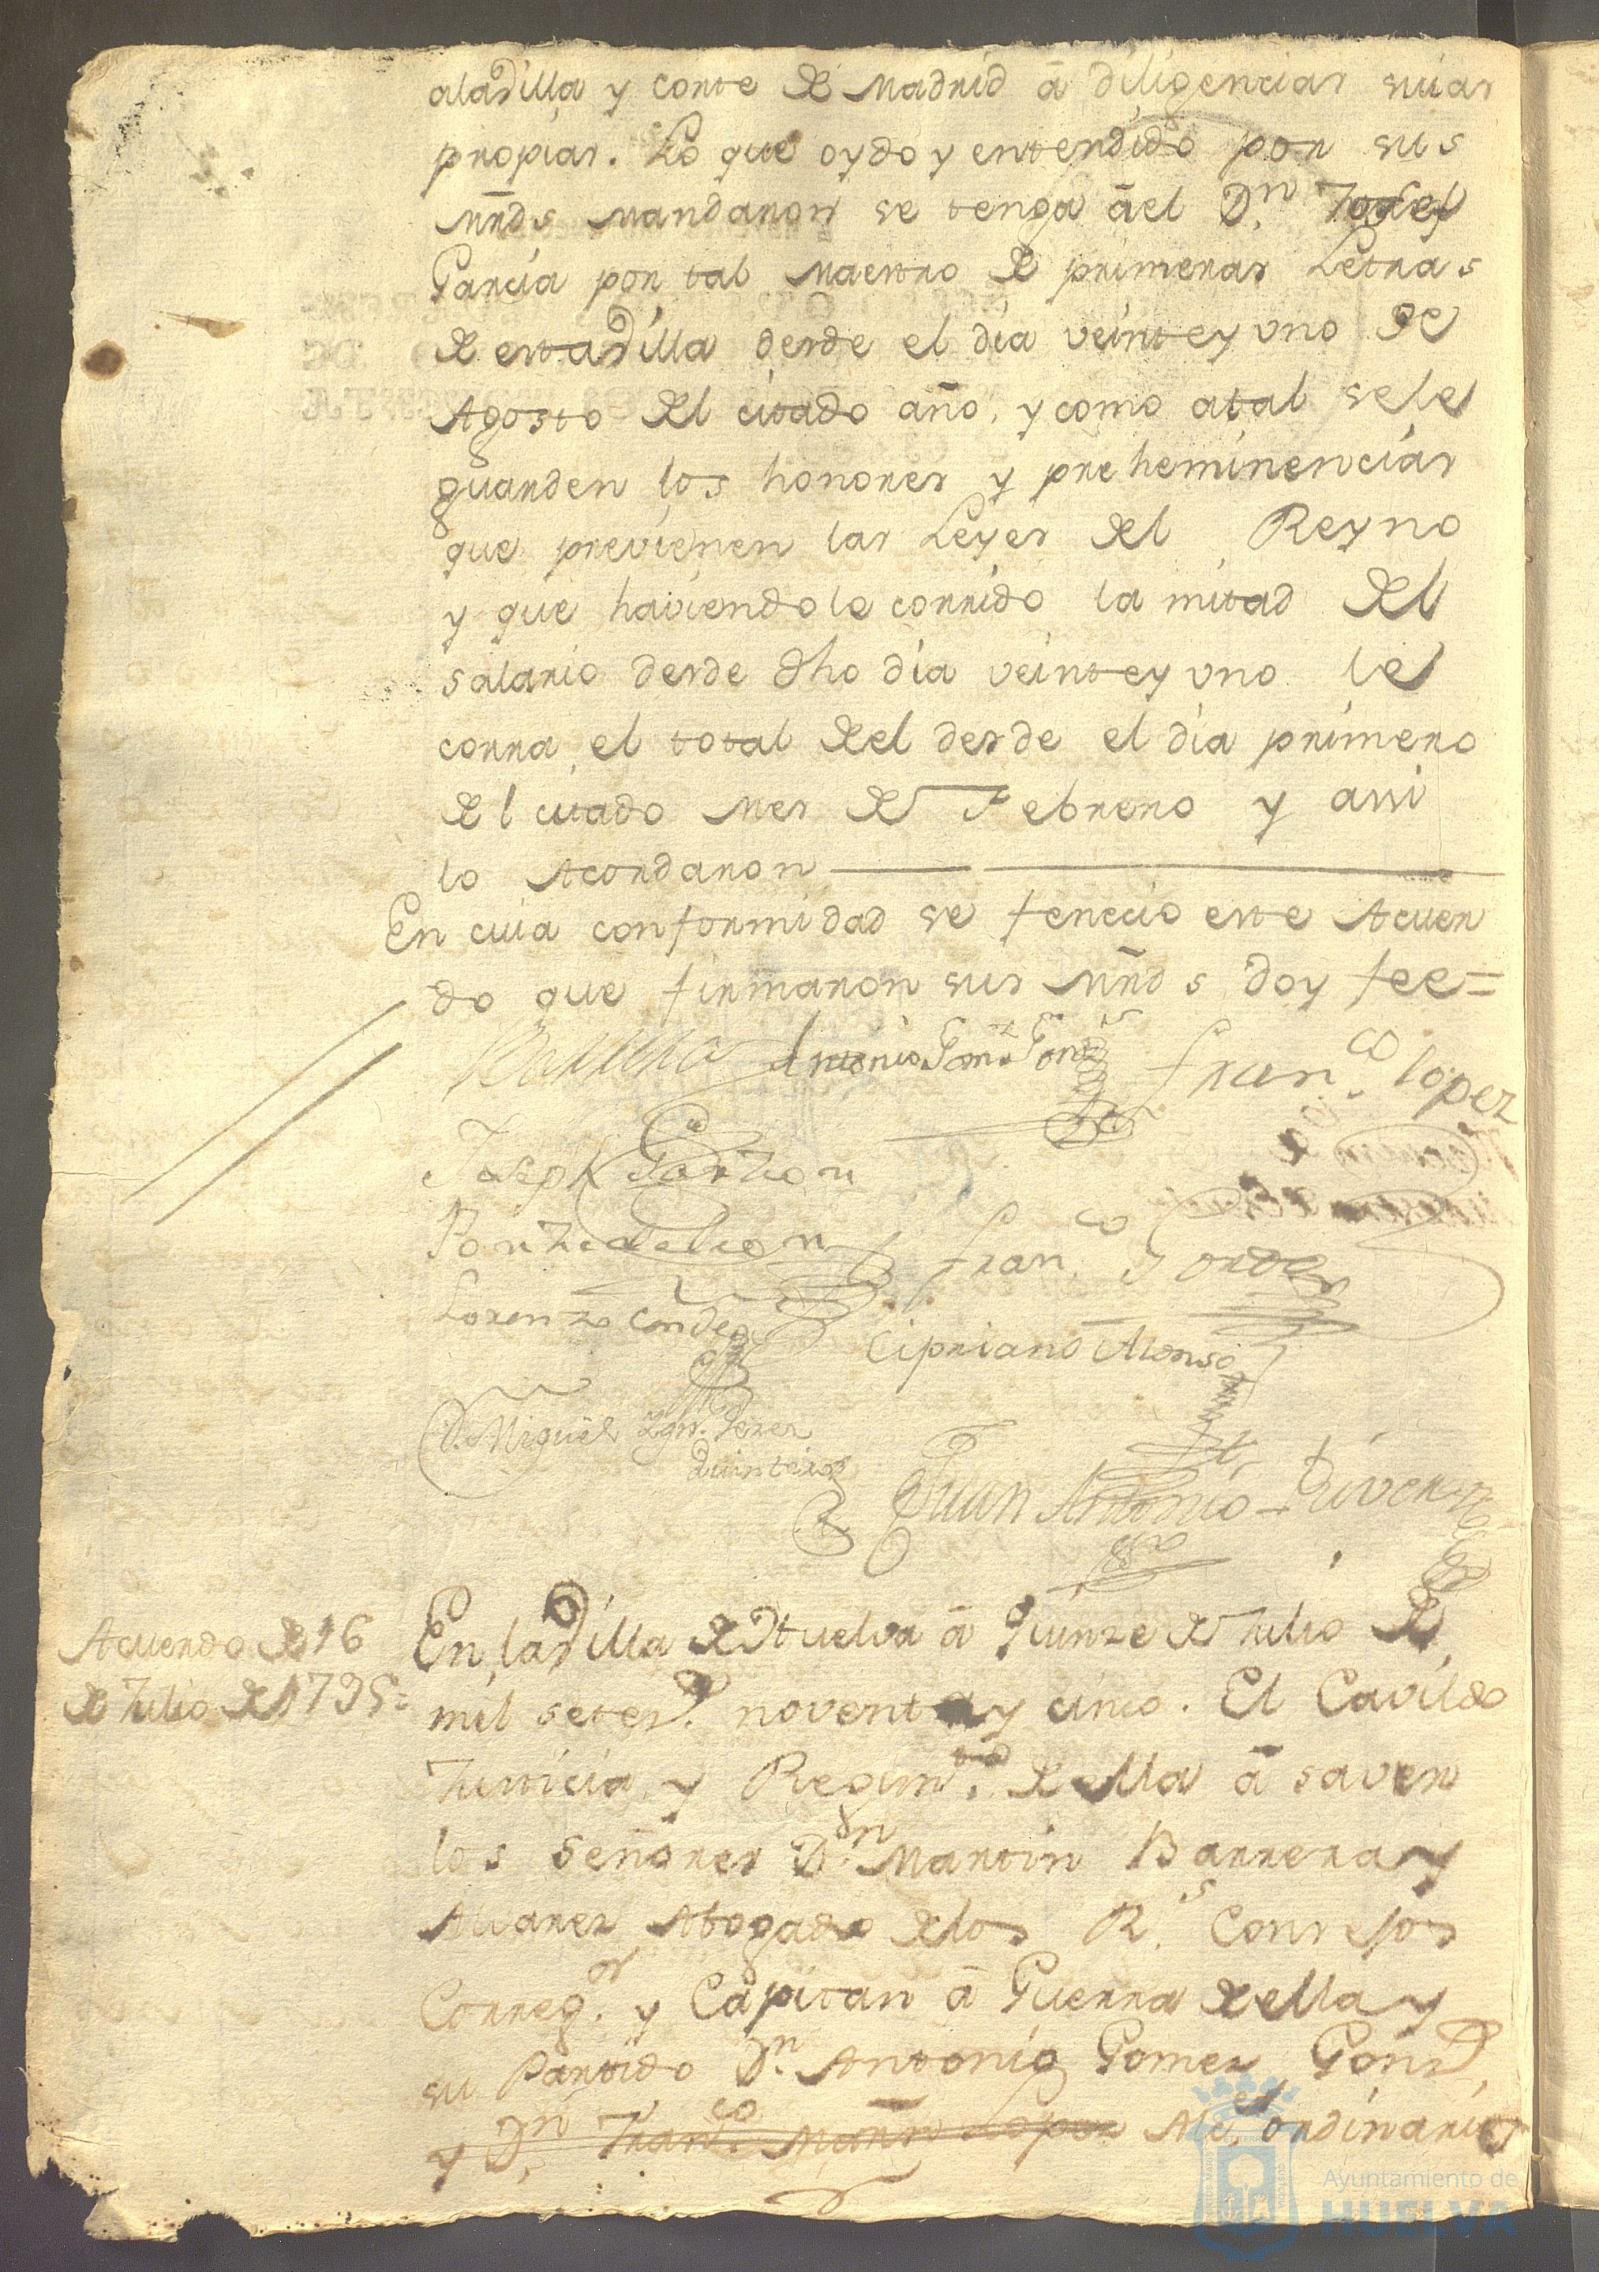 alavilla y corte de Madrid â diligencias suias
propias. Lo que oydo y entendido por sus
Mrds Mandaron se tenga âel Dn. Josef
Garcia por tal Maestro de primeras Letras
de estavilla desde el dia veinte y uno de
Agosto del citado año, y como atal sele
guarden los honores y preheminencias
que previenen las Leyes del Reyno
y que haviendole corrido la mitad del
salario desde dho dia veinte y uno le
corra el total del desde el dia primero
del citado Mes de Febrero y assi
lo Acordaron
En cuia conformidad se fenecio este Acuer
do que firmaron sus Mrds doy fee=
Barrera Antonio Gomz. Gonz Franco. lopez
Joseph Garzon
Ponze de leon Franco. Jordan
Lorenzo Conde Cipriano Alonso
D. Miguel Ign. Perez
Quintero
Juan Antonio Rivera
Acuerdo de 16
de Julio de 1795=
En lavilla de Huelva â Quinze de Julio de
mil setes. noventa y cinco. El Cavildo
Justicia y Regimto. de ella â saver
los Señores Dn. Martin Barrera y
Alvarez Abogado delos Rs. Consejos
Corregor. y Capitan â Guerra de ella y
su Partido Dn. Antonio Gomez Gonz.
y Dn. Franco. Marn Lopez Alces. ordinarios
Ayuntamiento de
HUELVA